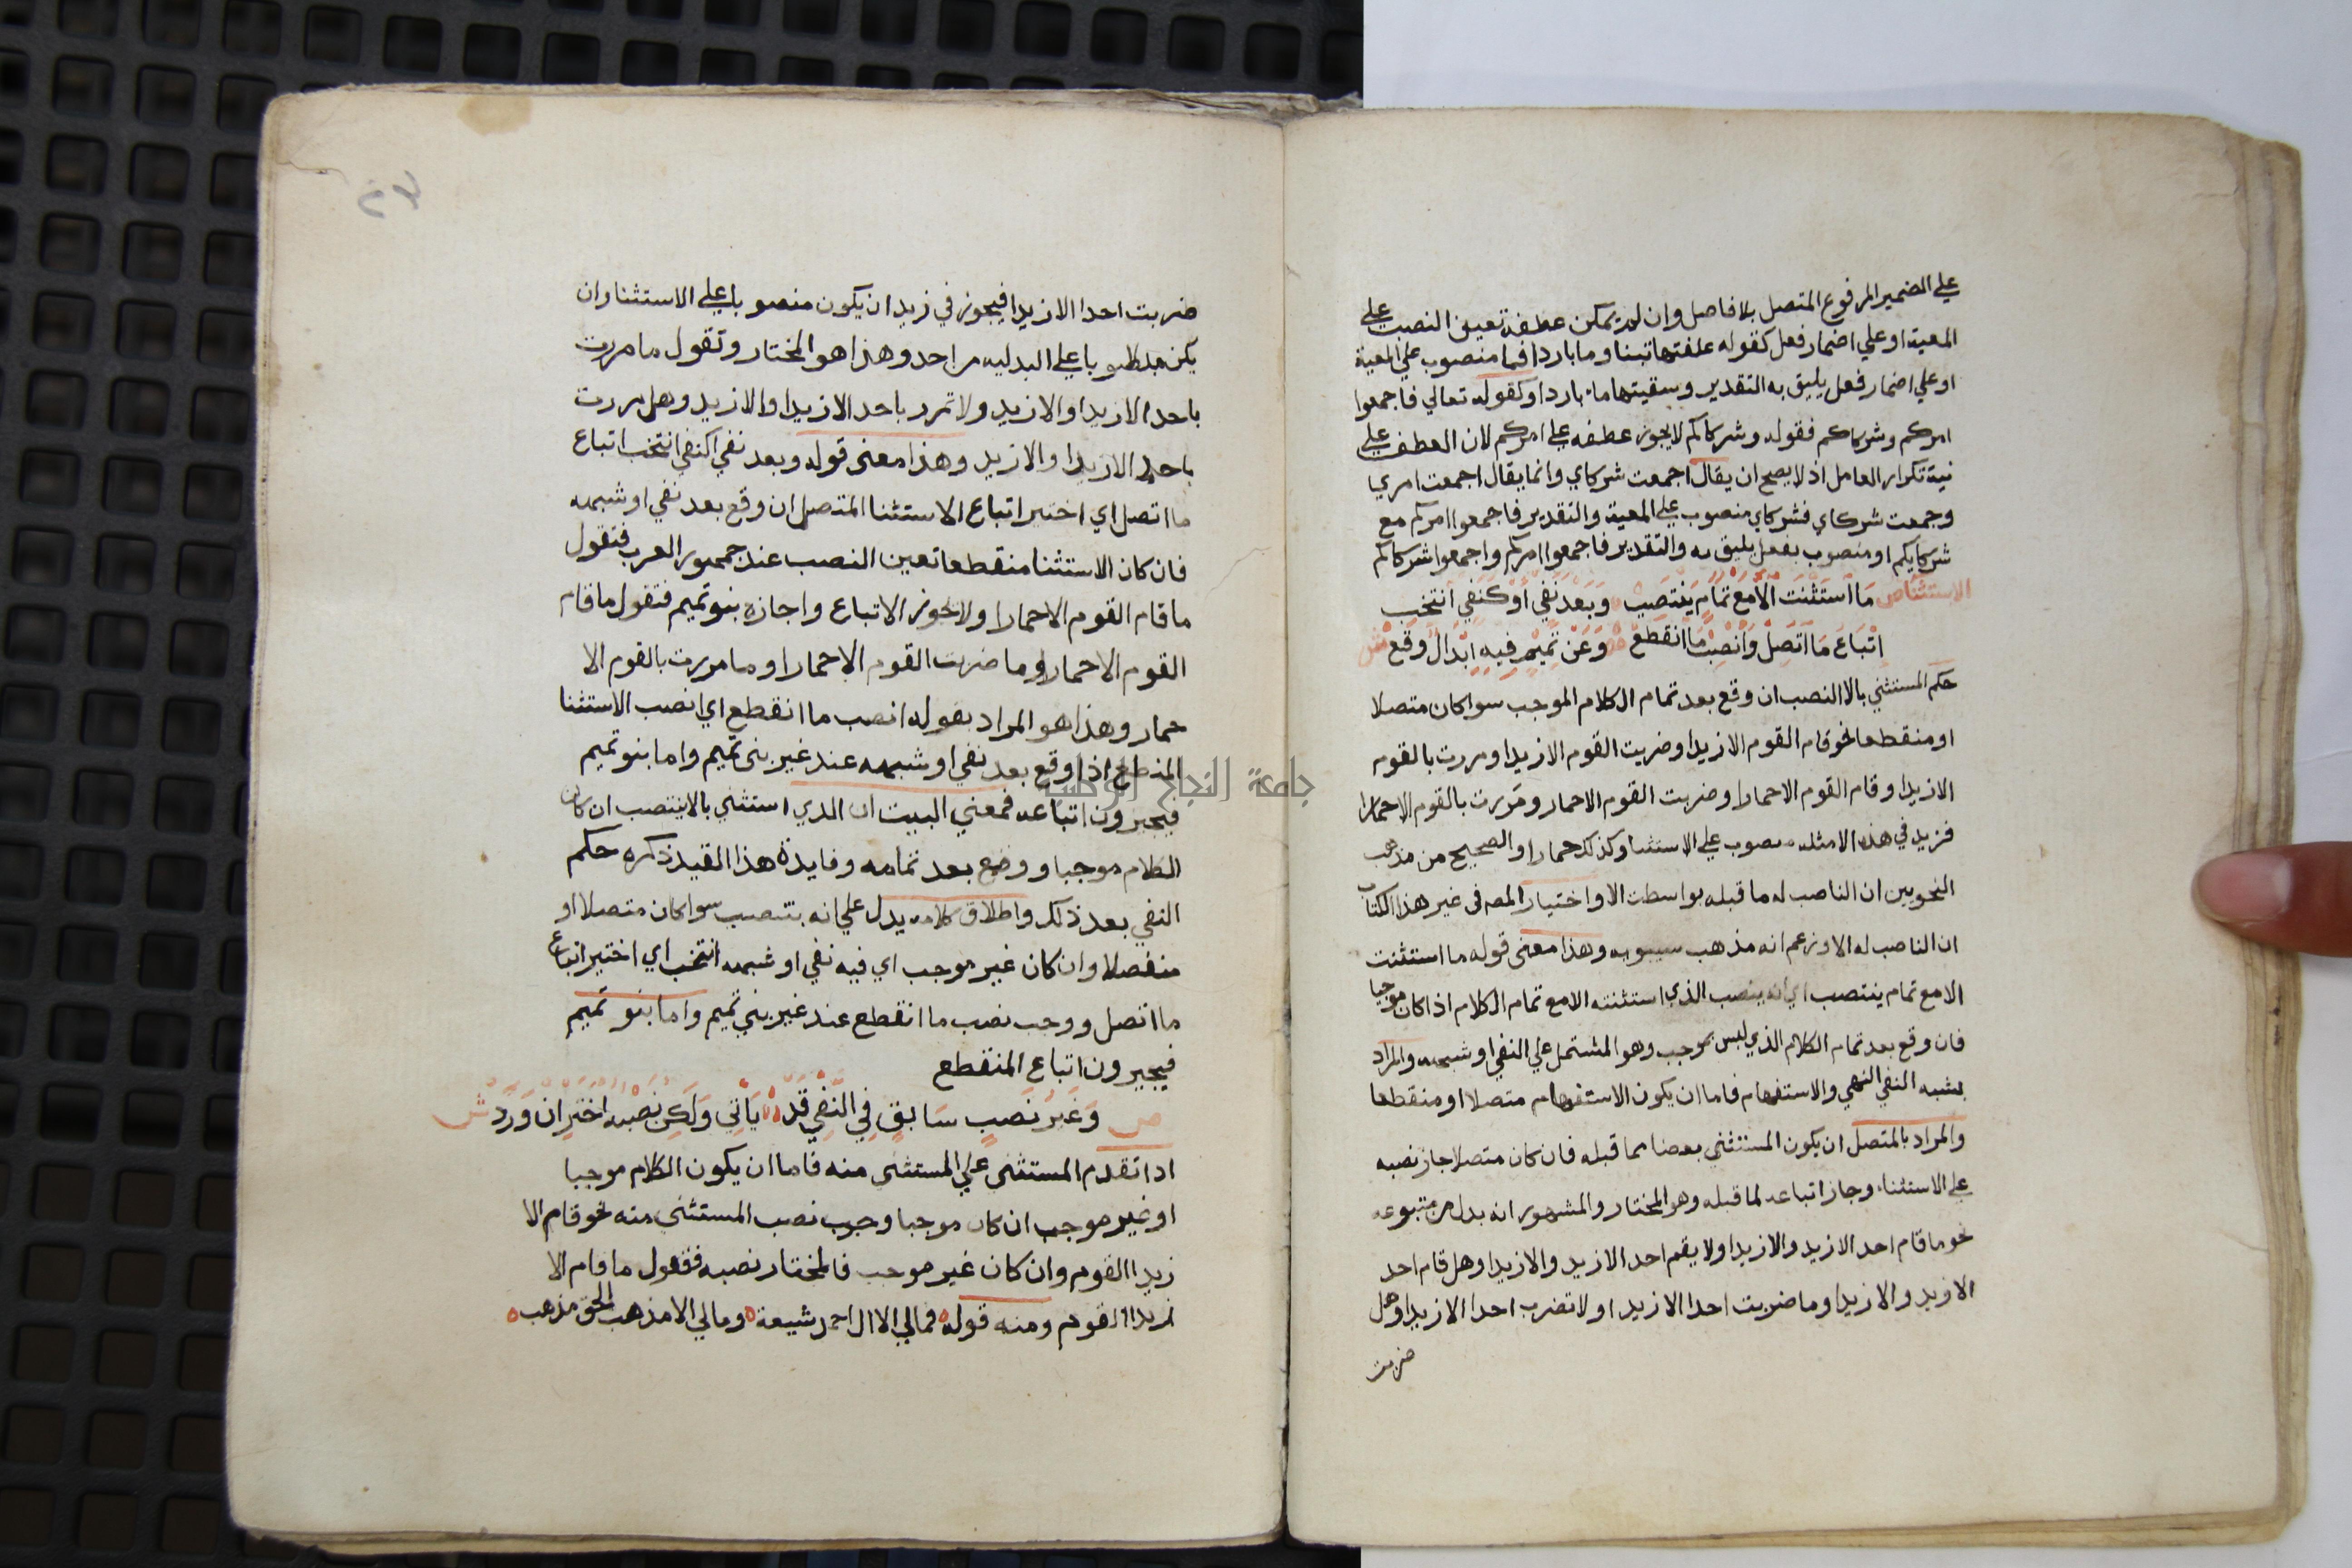 علي الضمير المرفوع المتصل بلا فاصل وان لم يمكن عطفه تعين النصب علي
المعية او علي اضمار فعل كقوله علفتها تبنا وما باردا فما منصوب علي المعية
او علي اضمار فعل يليق به التقدير وسقيتها ماء باردا وكقوله تعالي فاجمعوا
امركم وشركاكم فقوله وشركاكم لا يجوز عطفه علي امركم لان العطف علي
نية تكرار العامل اذ لا يصح ان يقال اجمعت شركاي وانما يقال اجمعت امري
وجمعت شركاي فشركاي منصوب علي المعية والتقدير فاجمعوا امركم مع
شركايكم او منصوب بفعل يليق به والتقدير فاجمعوا امركم واجمعوا شركاكم
الاستثنا ص مَا اسْتَثْنَتِ الَّا مَعْ تَمَامٍ يَنْتَصِبْ وَبَعْدَ نَفْيٍ أَوْ كَنَفْيٍ انْتُخِبْ
اتْبَاعُ مَا اتَّصَلْ وَانْصِبْ مَا انْقَطَعْ وَعَنْ تَمِيْمٍ فِيهِ ابْدَالٌ وَقَعْ ش
حكم المستثني بالا النصب ان وقع بعد تمام الكلام الموجب سوا كان متصلا
او منقطعا نحو قام القوم الا زيدا وضربت القوم الا زيدا ومررت بالقوم
الا زيدا وقام القوم الا حمارا وضربت القوم الا حمار ومررت بالقوم الا حمارا
فزيد في هذه الامثله منصوب علي الاستثنا وكذلك حمارا والصحيح من مذهب
النحويين ان الناصب له ما قبله بواسطت الا واختيار المص في غير هذا الكتاب
ان الناصب له الا وزعم انه مذهب سيبويه وهذا معني قوله ما استثنت
الا مع تمام ينتصب اي انه ينصب الذي استثنته الا مع تمام الكلام اذا كان موجبا
فان وقع بعد تمام الكلام الذي ليس بموجب وهو المشتمل علي النفي او شبهه والمراد
بشبه النفي النهي والاستفهام فاما ان يكون الاستفهام متصلا او منقطعا
والمراد بالمتصل ان يكون المستثني بعضا مما قبله فان كان متصلا جاز نصبه
علي الاستثناء وجاز اتباعه لما قبله وهو المختار والمشهور انه بدل من متبوعه
نحو ما قام احد الا زيد والا زيدا ولا يقم احد الا زيد والا زيدا وهل قام احد
الا زيد والا زيدا وما ضربت احدا الا زيدا ولا تضرب احدا الا زيدا وهل
ضربت
ضربت احدا الا زيدا فيجوز في زيد ان يكون منصوبا علي الاستثنا وان
يكن علي البدليه من احد وهذا هو المختار وتقول ما مررت
باحد الا زيدا والا زيد ولا تمرر باحد الا زيدا والا زيد وهل مررت
باحد الا زيدا والا زيد وهذا معني قوله وبعد نفي اكنفي انتخب اتباع
ما اتصل اي اختير اتباع الاستثنا المتصل ان وقع بعد نفي او شبهه
فان كان الاستثنا منقطعا تعين النصب عند جمهور العرب فتقول
ما قام القوم الا حمارا ولا يجوز الاتباع واجازه بنو تميم فتقول ما قام
القوم الا حمار وما ضربت القوم الا حمارا وما مررت بالقوم الا
حمار وهذا هو المراد بقوله انصب ما انقطع اي انصب الاستثنا
المنقطع اذا وقع بعد نفي او شبهه عند غير بني تميم واما بنو تميم
فيجيرون اتباعه فمعني البيت ان الذي استثني بالا ينتصب ان كان
الكلام موجبا ووقع بعد تمامه وفايدة هذا القيد ذكره حكم
النفي بعد ذلك واطلاق كلامه يدل علي انه ينتصب سوا كان متصلا او
منفصلا وان كان غير موجب اي فيه نفي او شبهه انتخب اي اختير اتباع
ما اتصل ووجب نصب ما انقطع عند غير بني تميم واما بنو تميم
فيجيرون اتباع المنقطع
ص وَغَيْرُ نَصْبِ سَابِقٍ فِي النَّفْيِ قَدْ يَاْتِي وَلَكِنْ نَصْبَهُ اخْتَرْ اِنْ وَرَدْ ش
اذا تقدم المستثني علي المستثني منه فاما ان يكون الكلام موجبا
او غير موجب ان كان موجبا وجب نصب المستثني منه نحو قام الا
زيدا القوم وان كان غير موجب فالمختار نصبه فتقول ما قام الا
زيدا القوم ومنه قوله فمالي الا ال احمد شيعة ومالي الا مذهب الحق مذهب
جامعة النجاح الوطنية